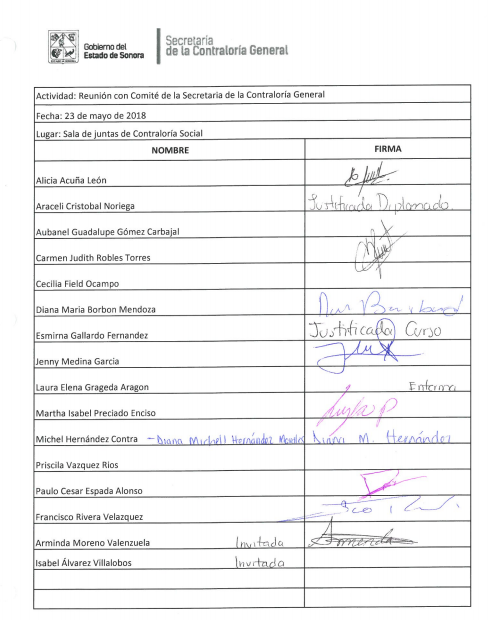 Gobierno del
Estado de Sonora
Secretaria
de la Contraloría General
Actividad: Reunión con Comité de la Secretaria de la Contraloría General
Fecha: 23 de mayo de 2018
Lugar: Sala de juntas de Contraloría Social
NOMBRE FIRMA
Alicia Acuña León
Araceli Cristobal Noriega Justificada Diplomado.
Aubanel Guadalupe Gómez Carbajal
Carmen Judith Robles Torres
Cecilia Field Ocampo
Diana Maria Borbon Mendoza
Esmirna Gallardo Fernandez Justificada Curso
Jenny Medina Garcia
Laura Elena Grageda Aragon Enferma
Martha Isabel Preciado Enciso
Michel Hernández Contra - Diana Michell Hernández Morales Diana M. Hernández
Priscila Vazquez Rios
Paulo Cesar Espada Alonso
Francisco Rivera Velazquez
Arminda Moreno Valenzuela Invitada
Isabel Álvarez Villalobos Invitada